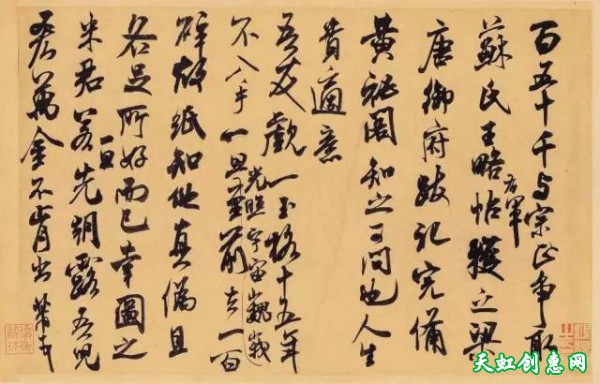 百五十千与宗正争取
蘇氏王略帖右軍獲之梁
唐御府跋記完備
黄祕閣知之可問也人生
貴適意
吾友覷一玉格十五年
不入手一旦光照宇宙巍峩至前去一百
碎故紙知他真偽且
各足所好而已幸圖之
米君若一旦先朝露吾兒
吝萬金不肯出芾頓首
天虹创惠网